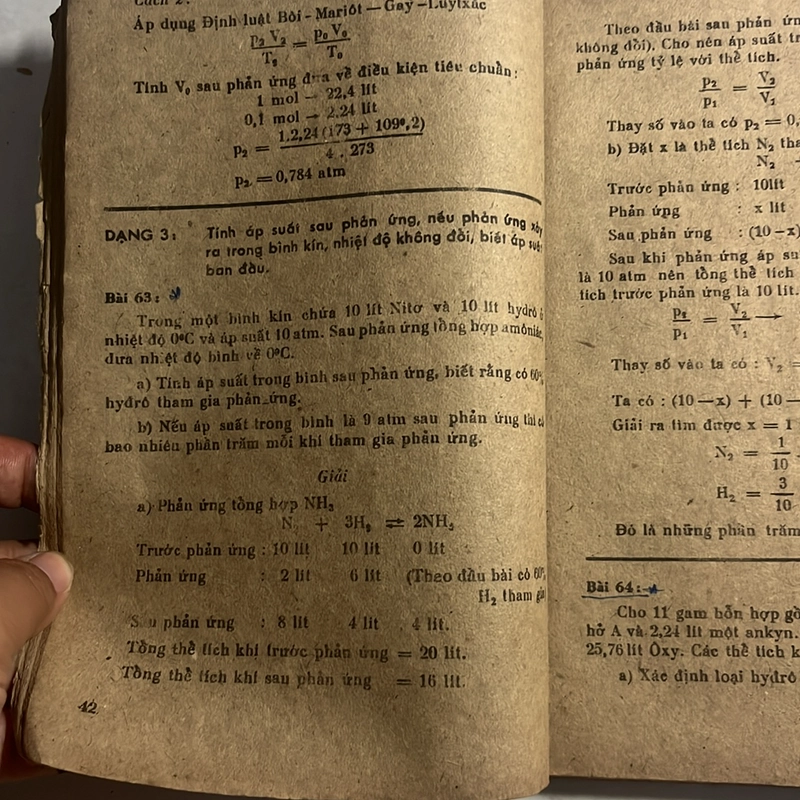 Cách 2 :
Áp dụng Định luật Bôi - Mariôt — Gay - Luytxăc
P₂ V₂ / T₂ = P₀ V₀ / T₀
Tính V₀ sau phản ứng đưa về điều kiện tiêu chuẩn :
1 mol → 22,4 lít
0,1 mol → 2,24 lít
P₂ = 1.2,24 (173 + 109⁰,2) / 4 . 273
P₂ = 0,784 atm
DẠNG 3 : Tính áp suất sau phản ứng, nếu phản ứng xảy
ra trong bình kín, nhiệt độ không đổi, biết áp suất
ban đầu.
Bài 63 :
Trong một bình kín chứa 10 lít Nitơ và 10 lít hydrô ở
nhiệt độ 0⁰C và áp suất 10 atm. Sau phản ứng tổng hợp amôniác,
đưa nhiệt độ bình về 0⁰C.
a) Tính áp suất trong bình sau phản ứng, biết rằng có 60%
hyđrô tham gia phản ứng.
b) Nếu áp suất trong bình là 9 atm sau phản ứng thì có
bao nhiêu phần trăm mỗi khí tham gia phản ứng.
Giải
a) Phản ứng tổng hợp NH₃
N₂ + 3H₂ ⇌ 2NH₃
Trước phản ứng : 10 lít 10 lít 0 lít
Phản ứng : 2 lít 6 lít (Theo đầu bài có 60%
H₂ tham gia
Sau phản ứng : 8 lít 4 lít 4 lít.
Tổng thể tích khí trước phản ứng = 20 lít.
Tổng thể tích khí sau phản ứng = 16 lít.
42
Theo đầu bài sau phản ứn
không đổi). Cho nên áp suất tr
phản ứng tỷ lệ với thể tích.
P₂ / P₁ = V₂ / V₁
Thay số vào ta có p₂ = 0,
b) Đặt x là thể tích N₂ tha
N₂ +
Trước phản ứng : 10lít
Phản ứng : x lít
Sau phản ứng : (10 - x)
Sau khi phản ứng áp su
là 10 atm nên tổng thể tích
tích trước phản ứng là 10 lít.
P₂ / P₁ = V₂ / V₁ →
Thay số vào ta có : V₂ =
Ta có : (10 — x) + (10 —
Giải ra tìm được x = 1
N₂ = 1 / 10
H₂ = 3 / 10
Đó là những phần trăm
Bài 64 :
Cho 11 gam hỗn hợp gồ
hở A và 2,24 lít một ankyn.
25,76 lít Ôxy. Các thể tích k
a) Xác định loại hyđrô